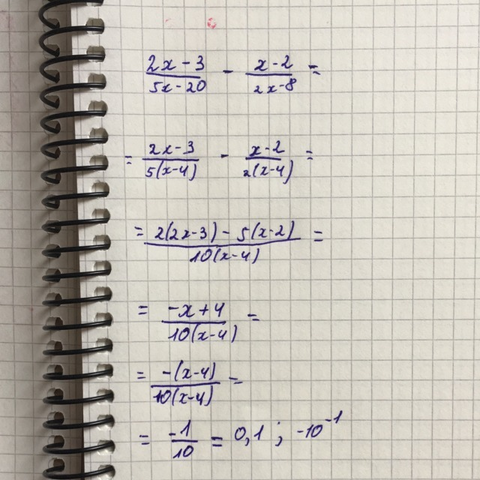 (2x-3)/(5x-20) - (x-2)/(2x-8) =
= (2x-3)/(5(x-4)) - (x-2)/(2(x-4)) =
= (2(2x-3) - 5(x-2))/(10(x-4)) =
= (-x+4)/(10(x-4)) =
= (-(x-4))/(10(x-4)) =
= -1/10 = 0,1 ; -10^-1